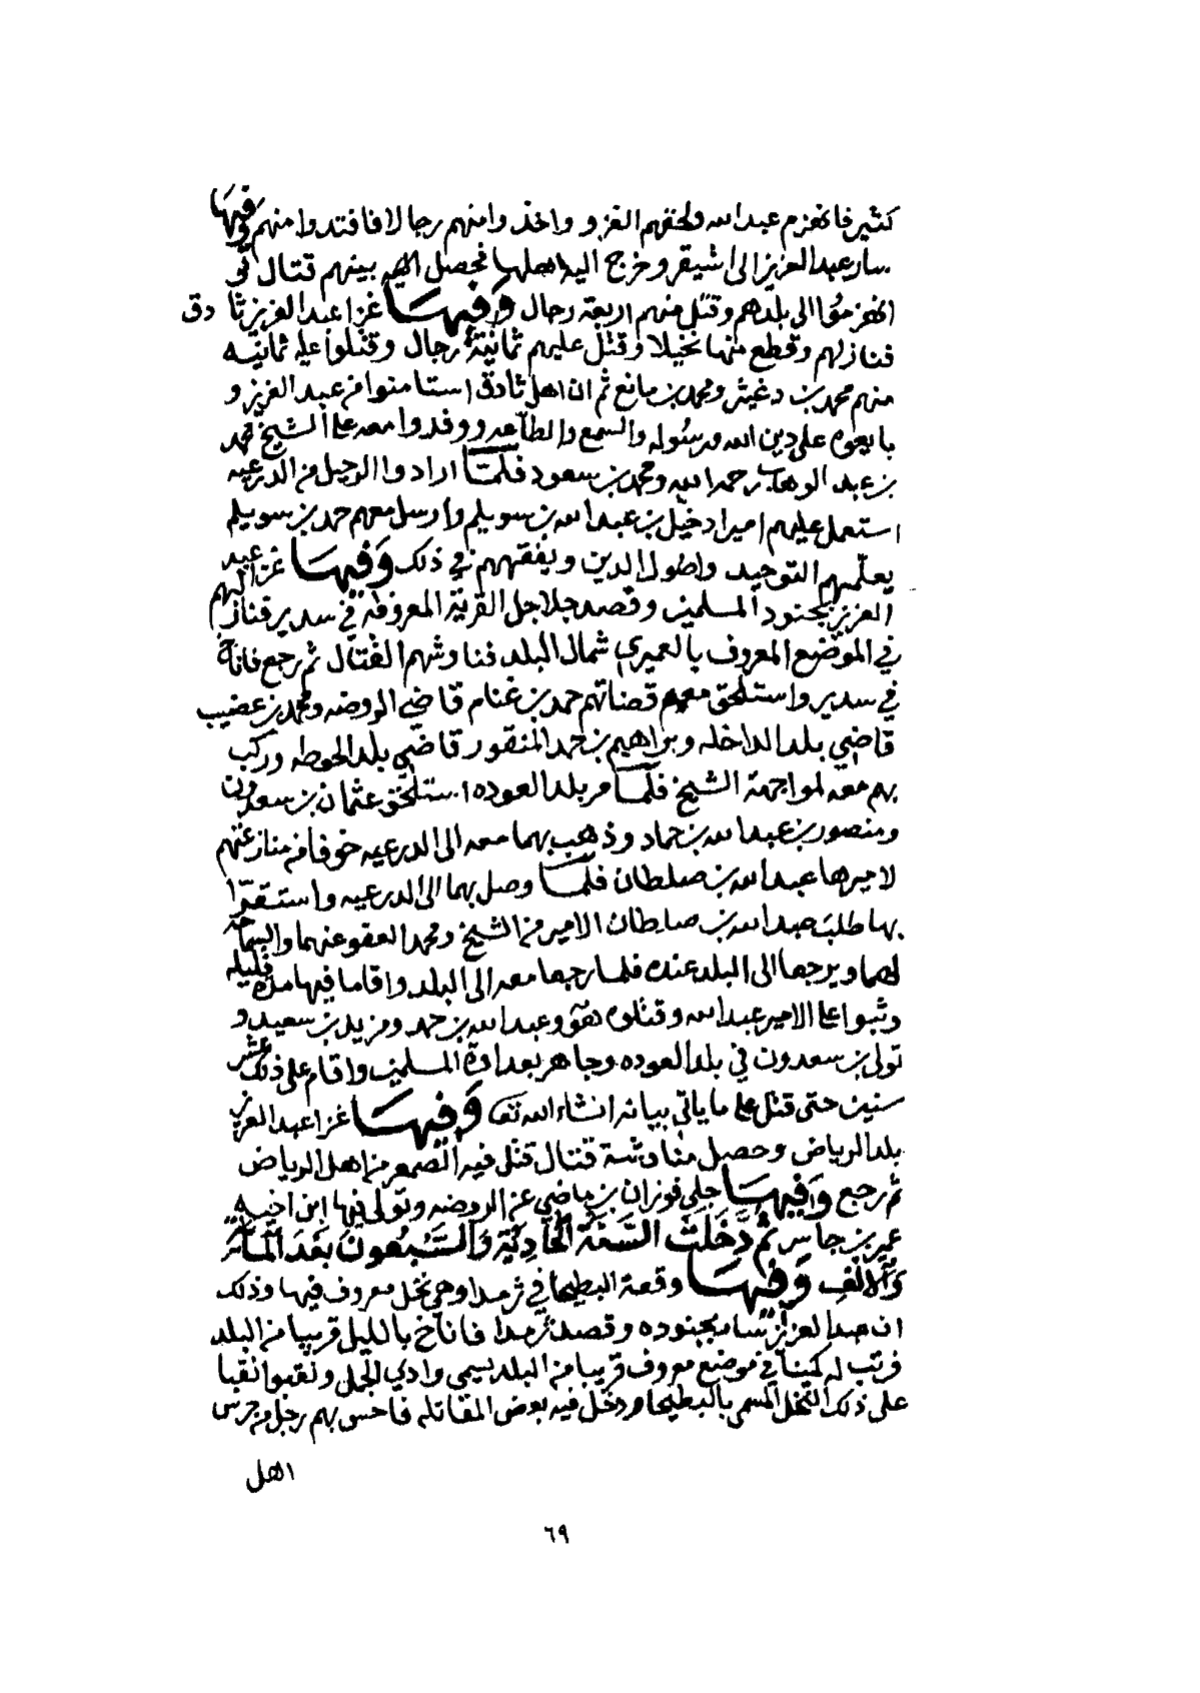 كثير فانهزم عبدالله ولحقهم الغزو واخذوا منهم رجالا فافتدوا منهم وفيها
سار عبدالعزيز الى اشيقر وخرج اليه اهلها فحصل بينهم قتال
انهزموا الى بلدهم وقتل منهم اربعة رجال وفيها غزا عبدالعزيز ثادق
فنازلهم وقطع منها نخيلا وقتل عليهم ثمانية رجال وقتلوا عليه ثمانيه
منهم محمد بن دغيثر ومحمد بن مانع ثم ان اهل ثادق استامنوا من عبدالعزيز و
بايعوه على دين الله ورسوله والسمع والطاعه ووفدوا معه على الشيخ محمد
بن عبد الوهاب رحمه الله ومحمد بن سعود فلما ارادوا الرحيل من الدرعيه
استعمل عليهم اميرا دخيل بن عبدالله بن سويلم وارسل معهم حمد بن سويلم
يعلمهم التوحيد واصول الدين ويفقههم في ذلك وفيها غزا عبد
العزيز بجنود المسلمين وقصد جلاجل القرية المعروفة في سدير فنازلهم
في الموضع المعروف بالعميري شمال البلد فناوشهم القتال ثم رجع فاناخ
في سدير واستلحق معهم قضاتهم حمد بن غنام قاضي الروضه ومحمد بن عضيب
قاضي بلد الداخله وبراهيم بن حمد المنقور قاضي بلد الحوطه وركب
بهم معه لمواجهة الشيخ فلما مر بلد العوده استلحق عثمان بن سعدون
ومنصور بن عبدالله بن حماد وذهب بهما معه الى الدرعيه خوفا من منازعتهم
لاميرها عبدالله بن صلطان فلما وصل بهما الى الدرعيه واستقرا
بها طلب عبدالله بن صلطان الامير من الشيخ ومحمد العفو عنهما والسماحه
لهما ويرجعا الى البلد عنده فلما رجعا معه الى البلد واقاما فيها مدة قليله
وثبوا على الامير عبدالله وقتلوه هو وعبدالله بن حمد ومزيد بن سعيد و
تولى بن سعدون في بلد العوده وجاهر بعداوة المسلمين واقام على ذلك عشر
سنين حتى قتل على ما ياتي بيانه انشاء الله تعا وفيها غزا عبدالعزيز
بلد الرياض وحصل مناوشة قتال قتل فيه الصمعر من اهل الرياض
ثم رجع وفيها جلي فوزان بن ماضي عن الروضه وتولى فيها ابن اخيه
عمير بن جاسر ثم دخلت السنة الحادية والسبعون بعد المائه
والالف وفيها وقعة البطيحا في ثرمدا وهي نخل معروف فيها وذلك
ان عبدالعزيز سار بجنوده وقصد ثرمدا فاناخ بالليل قريبا من البلد
فرتب له كمينا في موضع معروف قريبا من البلد يسمى وادي الجمل ونقبوا نقبا
على ذلك النخل المسمى بالبطيحا ودخل فيه بعض المقاتله فاحس بهم رجل من حرس
اهل
٦٩